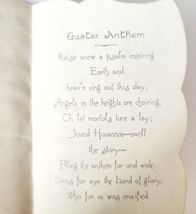 Easter Anthem
Raise anew a psalm inspiring
Earth and
heav'n sing out this day;
Angels in the heights are choiring,
Oh let mortals tune a lay;
Sound Hosannas—swell
the story—
Filling the anthem far and wide:
Lives for aye the Lord of glory,
Who for us was crucified.